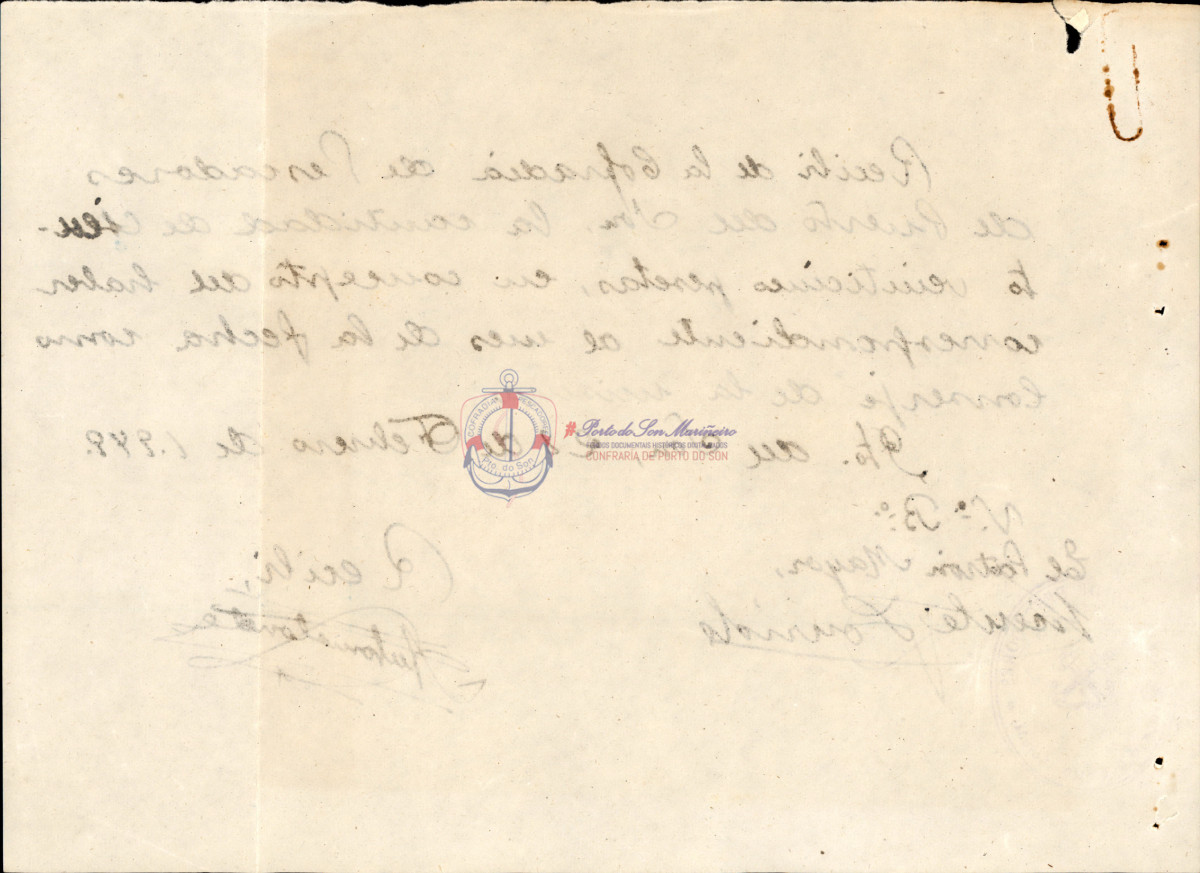 Recibí de la Cofradía de Pescadores
de Puerto del Son, la cantidad de cien-
to veinticinco pesetas, en concepto del haber
correspondiente al mes de la fecha como
Conserje de la
Pto. del Febrero de 1.948.
Vº Bº
El Patrón Mayor,
Recibí,
Vicente
COFRADIA PESCADORES
Pto. do Son
#Porto do Son Mariñeiro
FONDOS DOCUMENTAIS HISTÓRICOS DIXITALIZADOS
CONFRARÍA DE PORTO DO SON